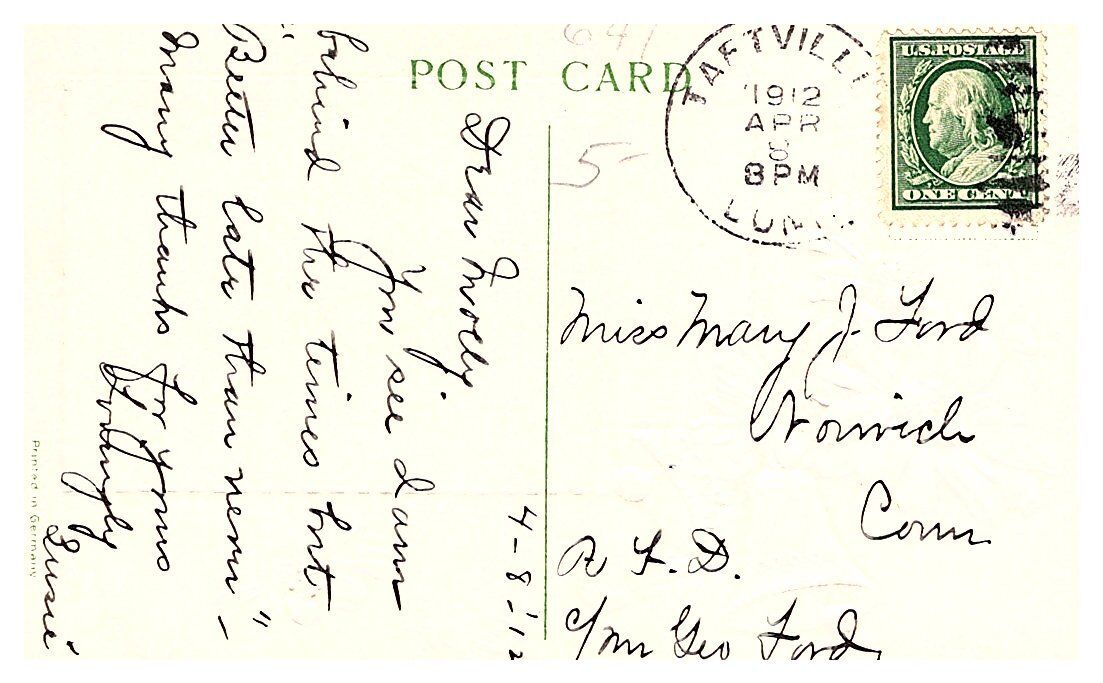 POST CARD
641
5-
TAFTVILLE
1912
APR
8
8 PM
CONN.
U.S. POSTAGE
ONE CENT
4-8-'12
Dear Molly
You see I am
behind the times but
"Better late than never" -
Many thanks for yours
Lovingly
Susie
Miss Mary J. Ford
Norwich
Conn
R F. D.
c/o Geo Ford
Printed in Germany